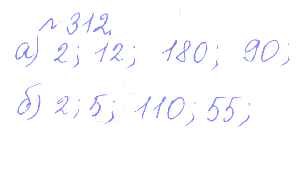 № 312.
а) 2; 12; 180; 90;
б) 2; 5; 110; 55;